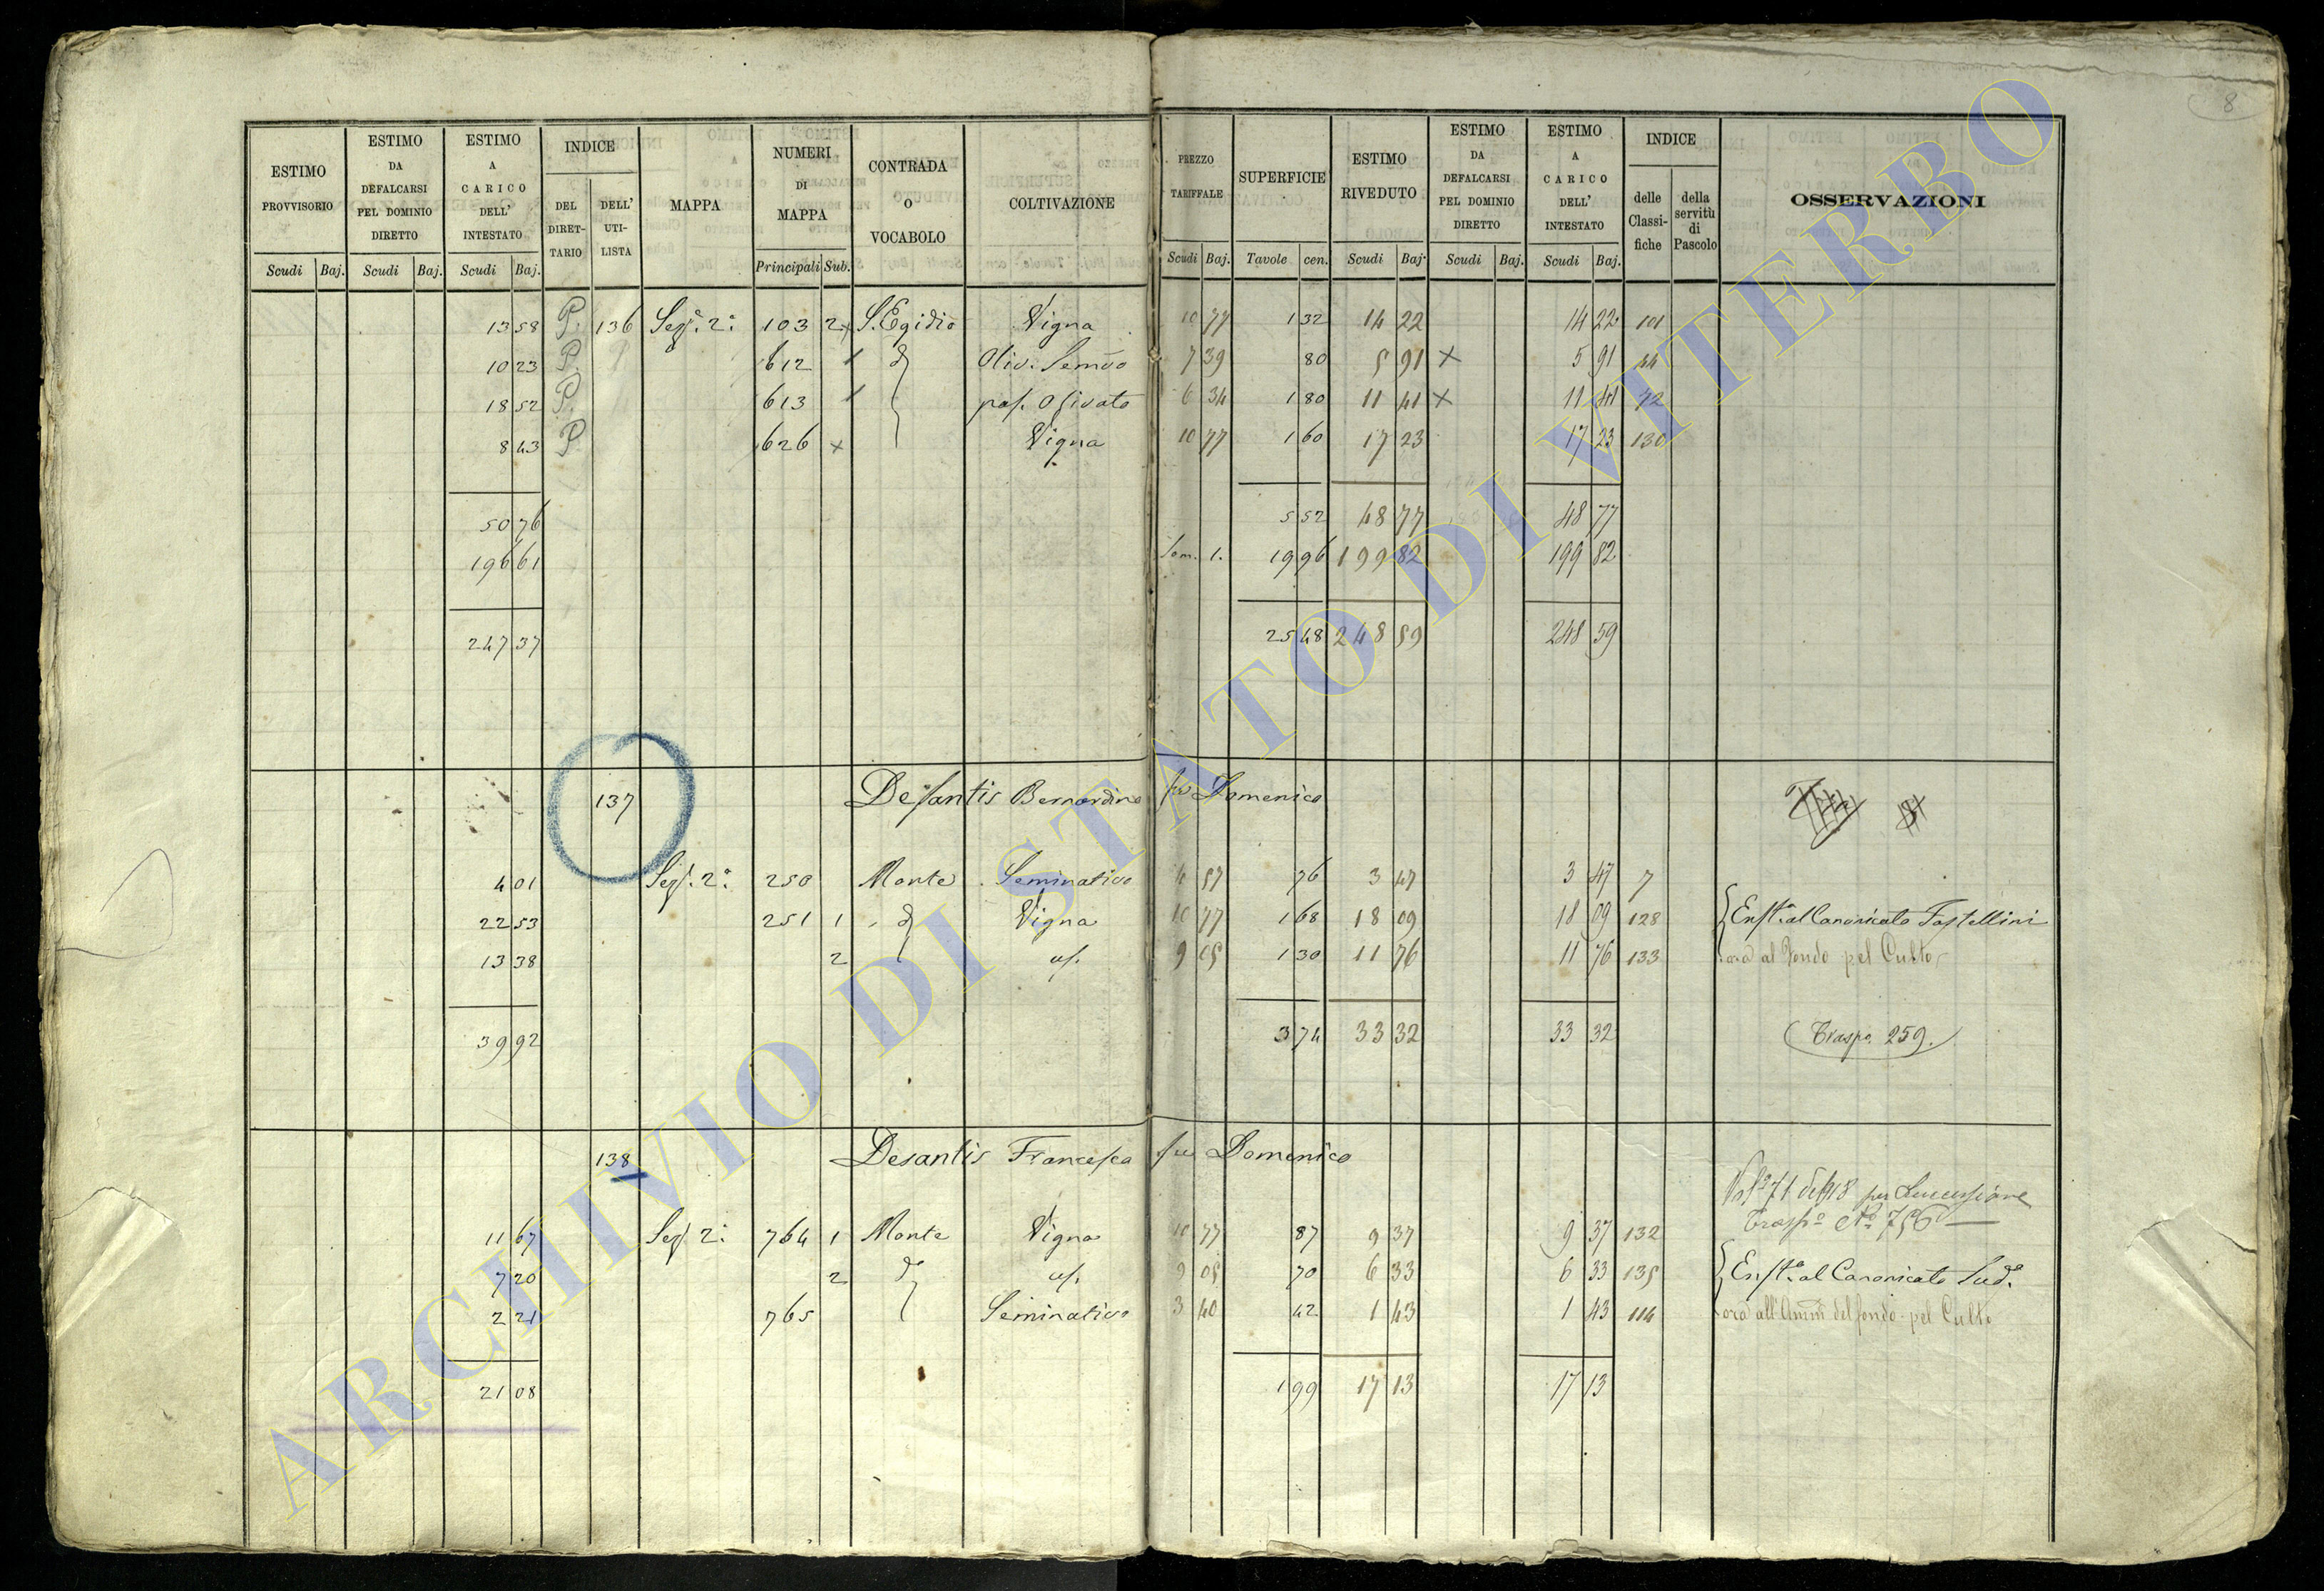 8
ESTIMO PROVVISORIO | ESTIMO DA DEFALCARSI PEL DOMINIO DIRETTO | ESTIMO A CARICO DELL' INTESTATO | INDICE DEL DIRET-TARIO | DELL' UTI-LISTA | MAPPA | NUMERI DI MAPPA | CONTRADA O VOCABOLO | COLTIVAZIONE | PREZZO TARIFFALE | SUPERFICIE | ESTIMO RIVEDUTO | ESTIMO DA DEFALCARSI PEL DOMINIO DIRETTO | ESTIMO A CARICO DELL' INTESTATO | INDICE delle Classi-fiche | della servitù di Pascolo | OSSERVAZIONI
Scudi Baj. | Scudi Baj. | Scudi Baj. | Principali Sub. | Scudi Baj. | Tavole cen. | Scudi Baj. | Scudi Baj. | Scudi Baj.
13 58 P. 136 Sez. 2ª 103 2 x S. Egidio Vigna 10 77 1 32 14 22 14 22 101
10 23 P. 612 dº Oliv. Semvo 7 39 80 5 91 x 5 91 44
18 52 P. 613 pas. Olivato 6 34 1 80 11 41 x 11 41 42
8 43 P 626 x Vigna 10 77 1 60 17 23 17 23 130
50 76 5 52 48 77 48 77
196 61 Som. 1. 19 96 199 82 199 82
247 37 25 48 248 59 248 59
137 Desantis Bernardino fu Domenico
4 01 Sez. 2ª 250 Monte Seminativo 4 57 76 3 47 3 47 7
22 53 251 1 dº Vigna 10 77 1 68 18 09 18 09 128 Enfta al Canonicato Fastellini
13 38 2 us. 9 05 1 30 11 76 11 76 133 ora al Fondo pel Culto
39 92 3 74 33 32 33 32 Traspo 259.
138 Desantis Francesca fu Domenico
71 del 918 per Successione
Traspo No 756
11 67 Sez. 2ª 764 1 Monte Vigna 10 77 87 9 37 9 37 132
7 20 2 dº us. 9 05 70 6 33 6 33 135 Enfta al Canonicato Sudº
2 21 765 Seminativo 3 40 42 1 43 1 43 114 ora all'Amm del fondo pel Culto
21 08 1 99 17 13 17 13
ARCHIVIO DI STATO DI VITERBO